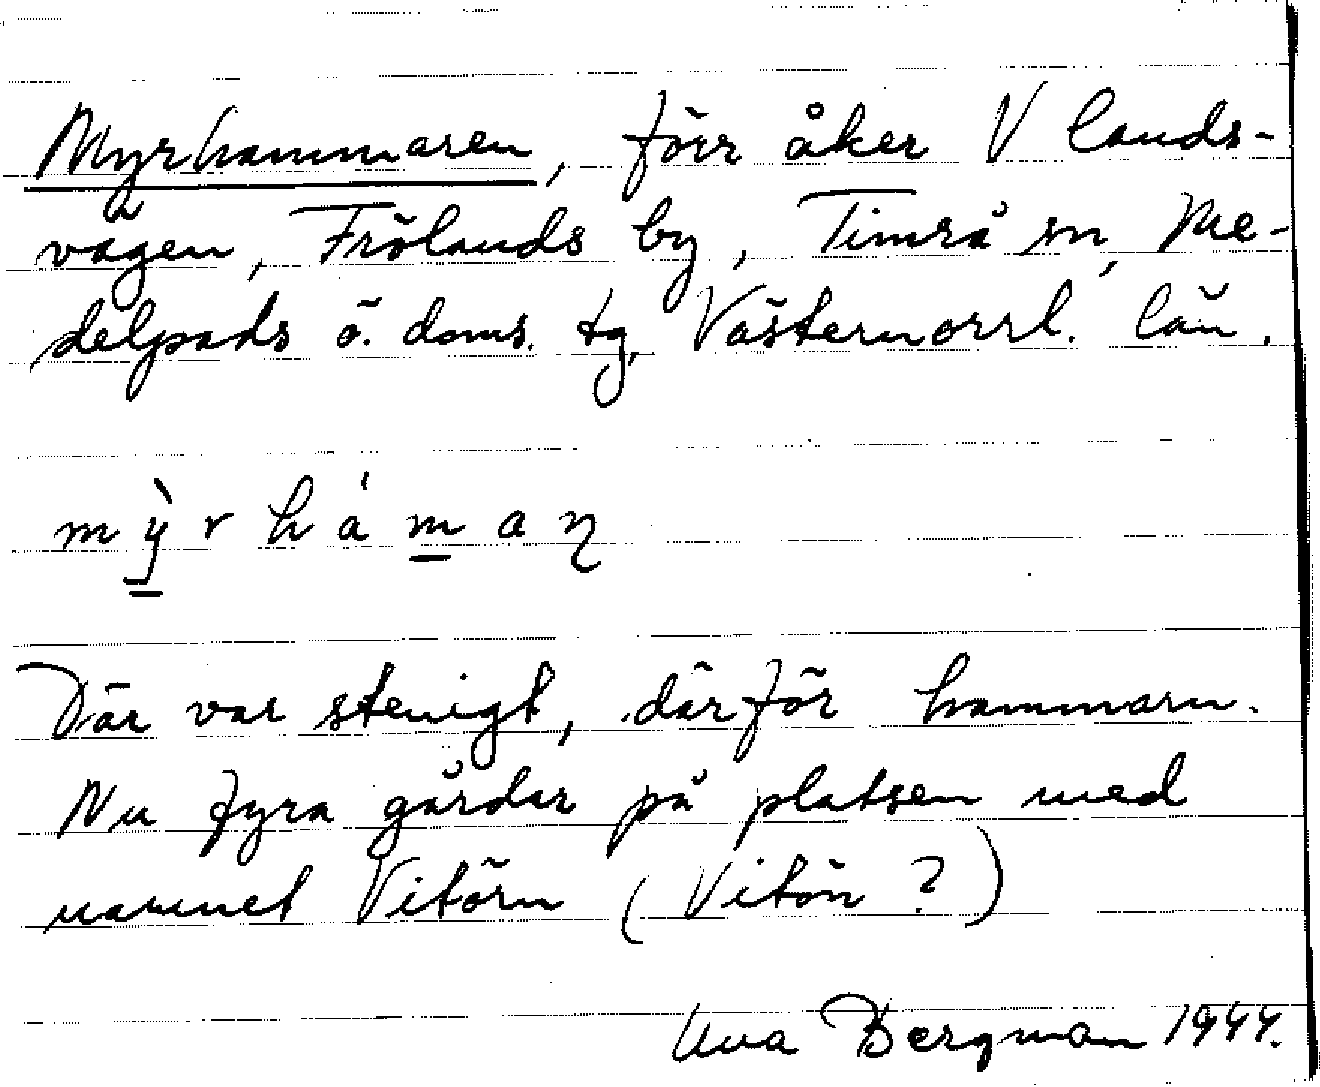 Myrhammaren, förr åker V lands-
vägen, Frölands by, Timrå sn, Me-
delpads ö. doms. tg, Västernorrl. län.
mỳrhámaη
Där var stenigt, därför hammarn.
Nu fyra gårdar på platsen med
namnet Vitörn (Vitön ?)
Una Bergman 1944.